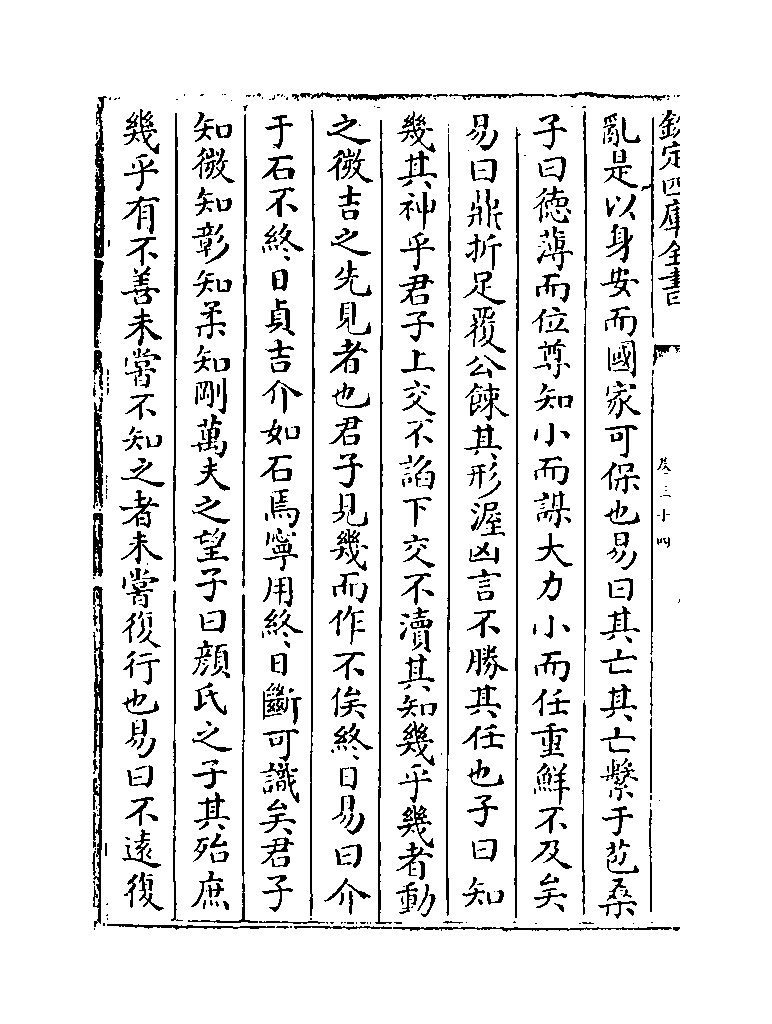 欽定四庫全書
卷三十四
亂是以身安而國家可保也易曰其亡其亡繫于苞桑
子曰徳薄而位尊知小而謀大力小而任重鮮不及矣
易曰鼎折足覆公餗其形渥凶言不勝其任也子曰知
幾其神乎君子上交不諂下交不瀆其知幾乎幾者動
之微吉之先見者也君子見幾而作不俟終日易曰介
于石不終日貞吉介如石焉寧用終日斷可識矣君子
知微知彰知柔知剛萬夫之望子曰顔氏之子其殆庶
幾乎有不善未嘗不知之者未嘗復行也易曰不逺復